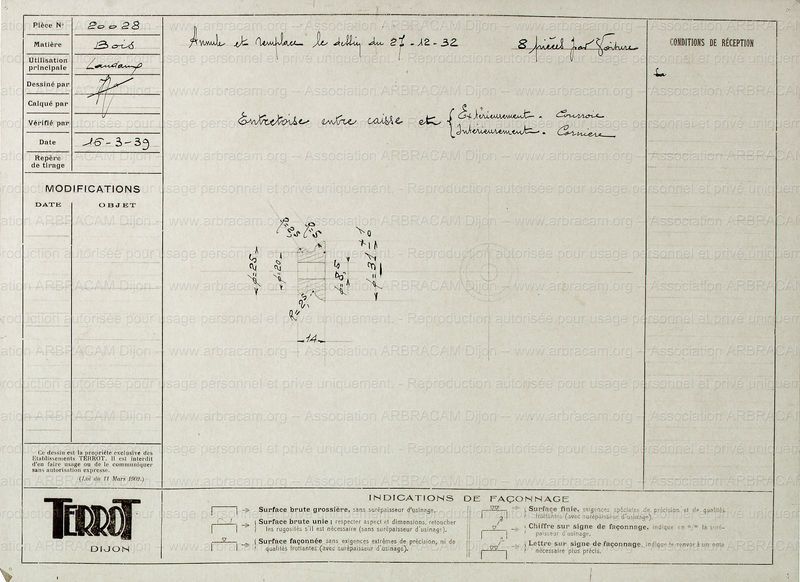 Pièce N° 20028
Matière Bois
Utilisation principale Landaux
Dessiné par
Calqué par
Vérifié par
Date 16-3-39
Repère de tirage
MODIFICATIONS
DATE OBJET
Annule et remplace le dessin du 27-12-32 8 pièces par Voiture
CONDITIONS DE RÉCEPTION
Entretoise entre caisse et { Extérieurement - Courroie
Intérieurement - Cornière
ρ=2,5
ρ=5
φ=25
φ=20
φ=8,5
φ=31 +1 0
ρ=25
14
Ce dessin est la propriété exclusive des
Etablissements TERROT. Il est interdit
d'en faire usage ou de le communiquer
sans autorisation expresse.
(Loi du 11 Mars 1902.)
TERROT
DIJON
INDICATIONS DE FAÇONNAGE
Surface brute grossière, sans surépaisseur d'usinage.
Surface brute unie : respecter aspect et dimensions, retoucher
les rugosités s'il est nécessaire (sans surépaisseur d'usinage).
Surface façonnée sans exigences extrêmes de précision, ni de
qualités frottantes (avec surépaisseur d'usinage).
Surface finie, exigences spéciales de précision et de qualités
frottantes (avec surépaisseur d'usinage).
Chiffre sur signe de façonnage, indique en m/m la surépaisseur d'usinage.
Lettre sur signe de façonnage, indique le renvoi à une note
nécessaire plus précis.
www.arbracam.org – Association ARBRACAM Dijon
Reproduction autorisée pour usage personnel et privé uniquement.